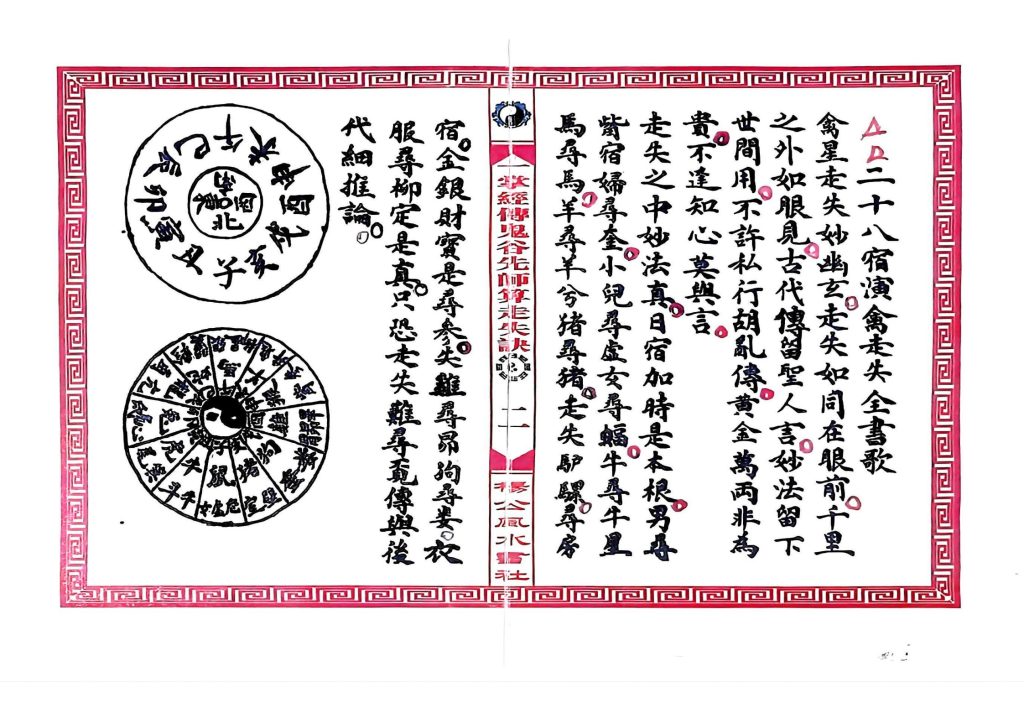 二十八宿演禽走失全書歌
禽星走失妙幽玄。走失如同在眼前。千里
之外如眼見。古代傳留聖人言。妙法留下
世間用。不許私行胡亂傳。黃金萬兩非為
貴。不逢知心莫與言。
走失之中妙法真。日宿加時是本根。男尋
觜宿婦尋奎。小兒尋虛女尋蝠。牛尋牛星
馬尋馬。羊尋羊兮猪尋猪。走失馿騾尋房
鬼谷先師算走失訣
二一
楊公風水書社
宿。金銀財寶是尋參。失雞尋昴狗尋娄。衣
服尋柳定是真。只恐走失難尋覓傳與後
代細推論。
子丑寅卯辰巳午未申酉戌亥
北